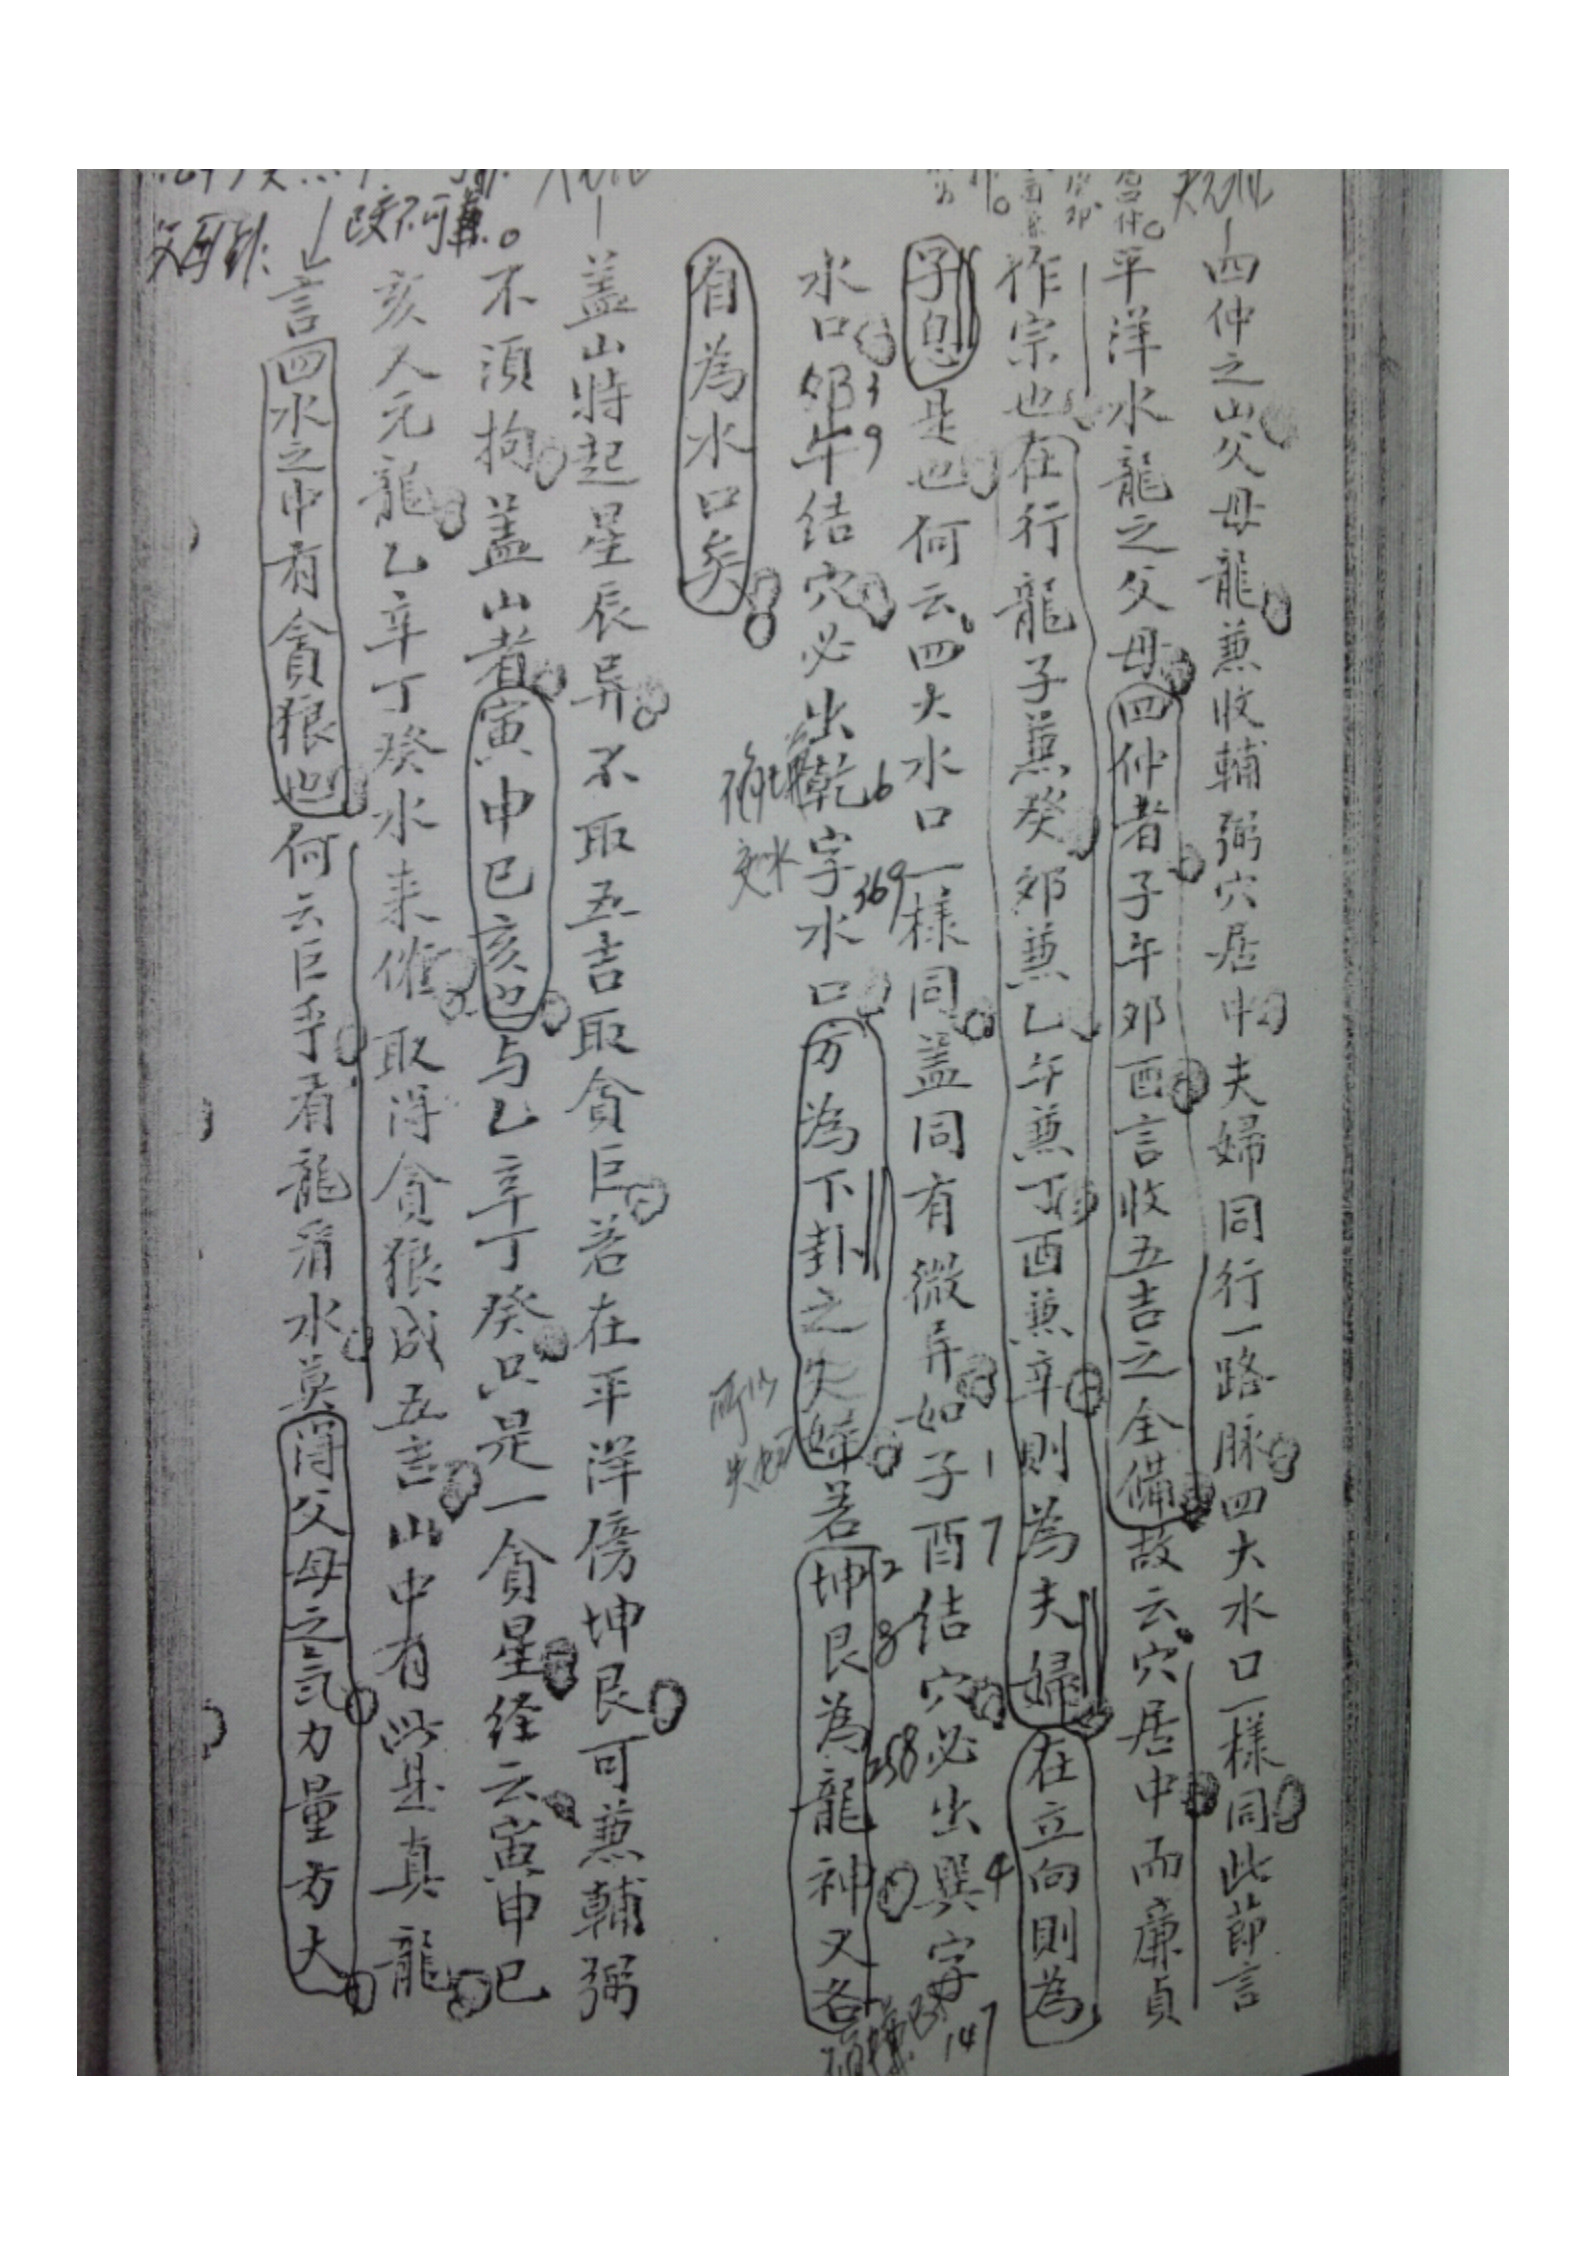 四仲之山父母龍兼收輔弼穴居中夫婦同行一路脉四大水口一樣同此節言
平洋水龍之父母四仲者子午夘酉言收五吉之全備故云穴居中而廉貞
作宗也在行龍子兼癸夘兼乙午兼丁酉兼辛則為夫婦在立向則為
子息是也何云四大水口一樣同盖同有微异如子酉结穴必出巽字
水口夘午结穴必出乾字水口方為下卦之夫婦若坤艮為龍神又各
有為水口矣
盖山特起星辰异不取五吉取貪巨若在平洋傍坤艮可兼輔弼
不須拘盖山者寅申巳亥也与乙辛丁癸只是一貪星经云寅申巳
亥人元龍乙辛丁癸水来催取得貪狼成五吉山中有此是真龍
言四水之中有貪狼也何云巨乎看龍看水莫得父母之氣力量方大
改不可篡。
1
7
4
147
3
9
6
369
2
8
258